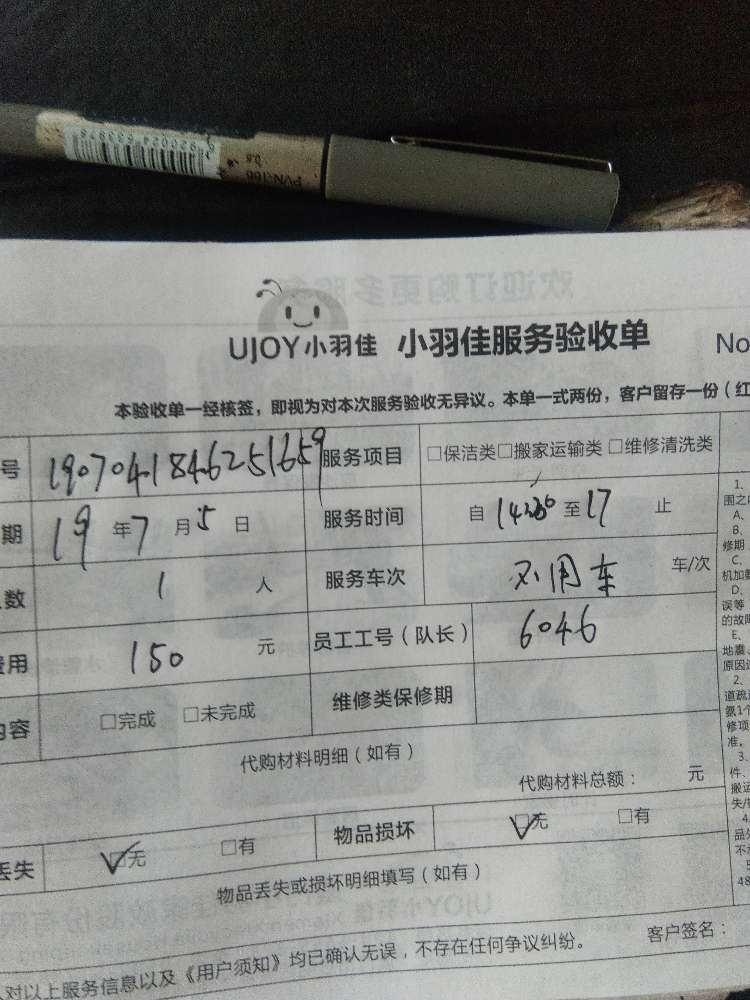 PVN-166
0.6
UJOY小羽佳 小羽佳服务验收单 No
本验收单一经核签，即视为对本次服务验收无异议。本单一式两份，客户留存一份（红
号 1907041846251659 服务项目 □保洁类□搬家运输类 □维修清洗类
期 19 年 7 月 5 日 服务时间 自 14:30 至 17 止
数 1 人 服务车次 不用车 车/次
费用 150 元 员工工号（队长） 6046
内容 □完成 □未完成 维修类保修期
代购材料明细（如有）
代购材料总额： 元
丢失 ☑无 □有 物品损坏 ☑无 □有
物品丢失或损坏明细填写（如有）
人对以上服务信息以及《用户须知》均已确认无误，不存在任何争议纠纷。 客户签名：
1、
围之
A、
B、
修期
C、
机加
D、
误等
的故障
E、
地震、
原因
2、
道疏
氨1个
修项
准。
3、
件、
搬运
失/
4
品
不
48